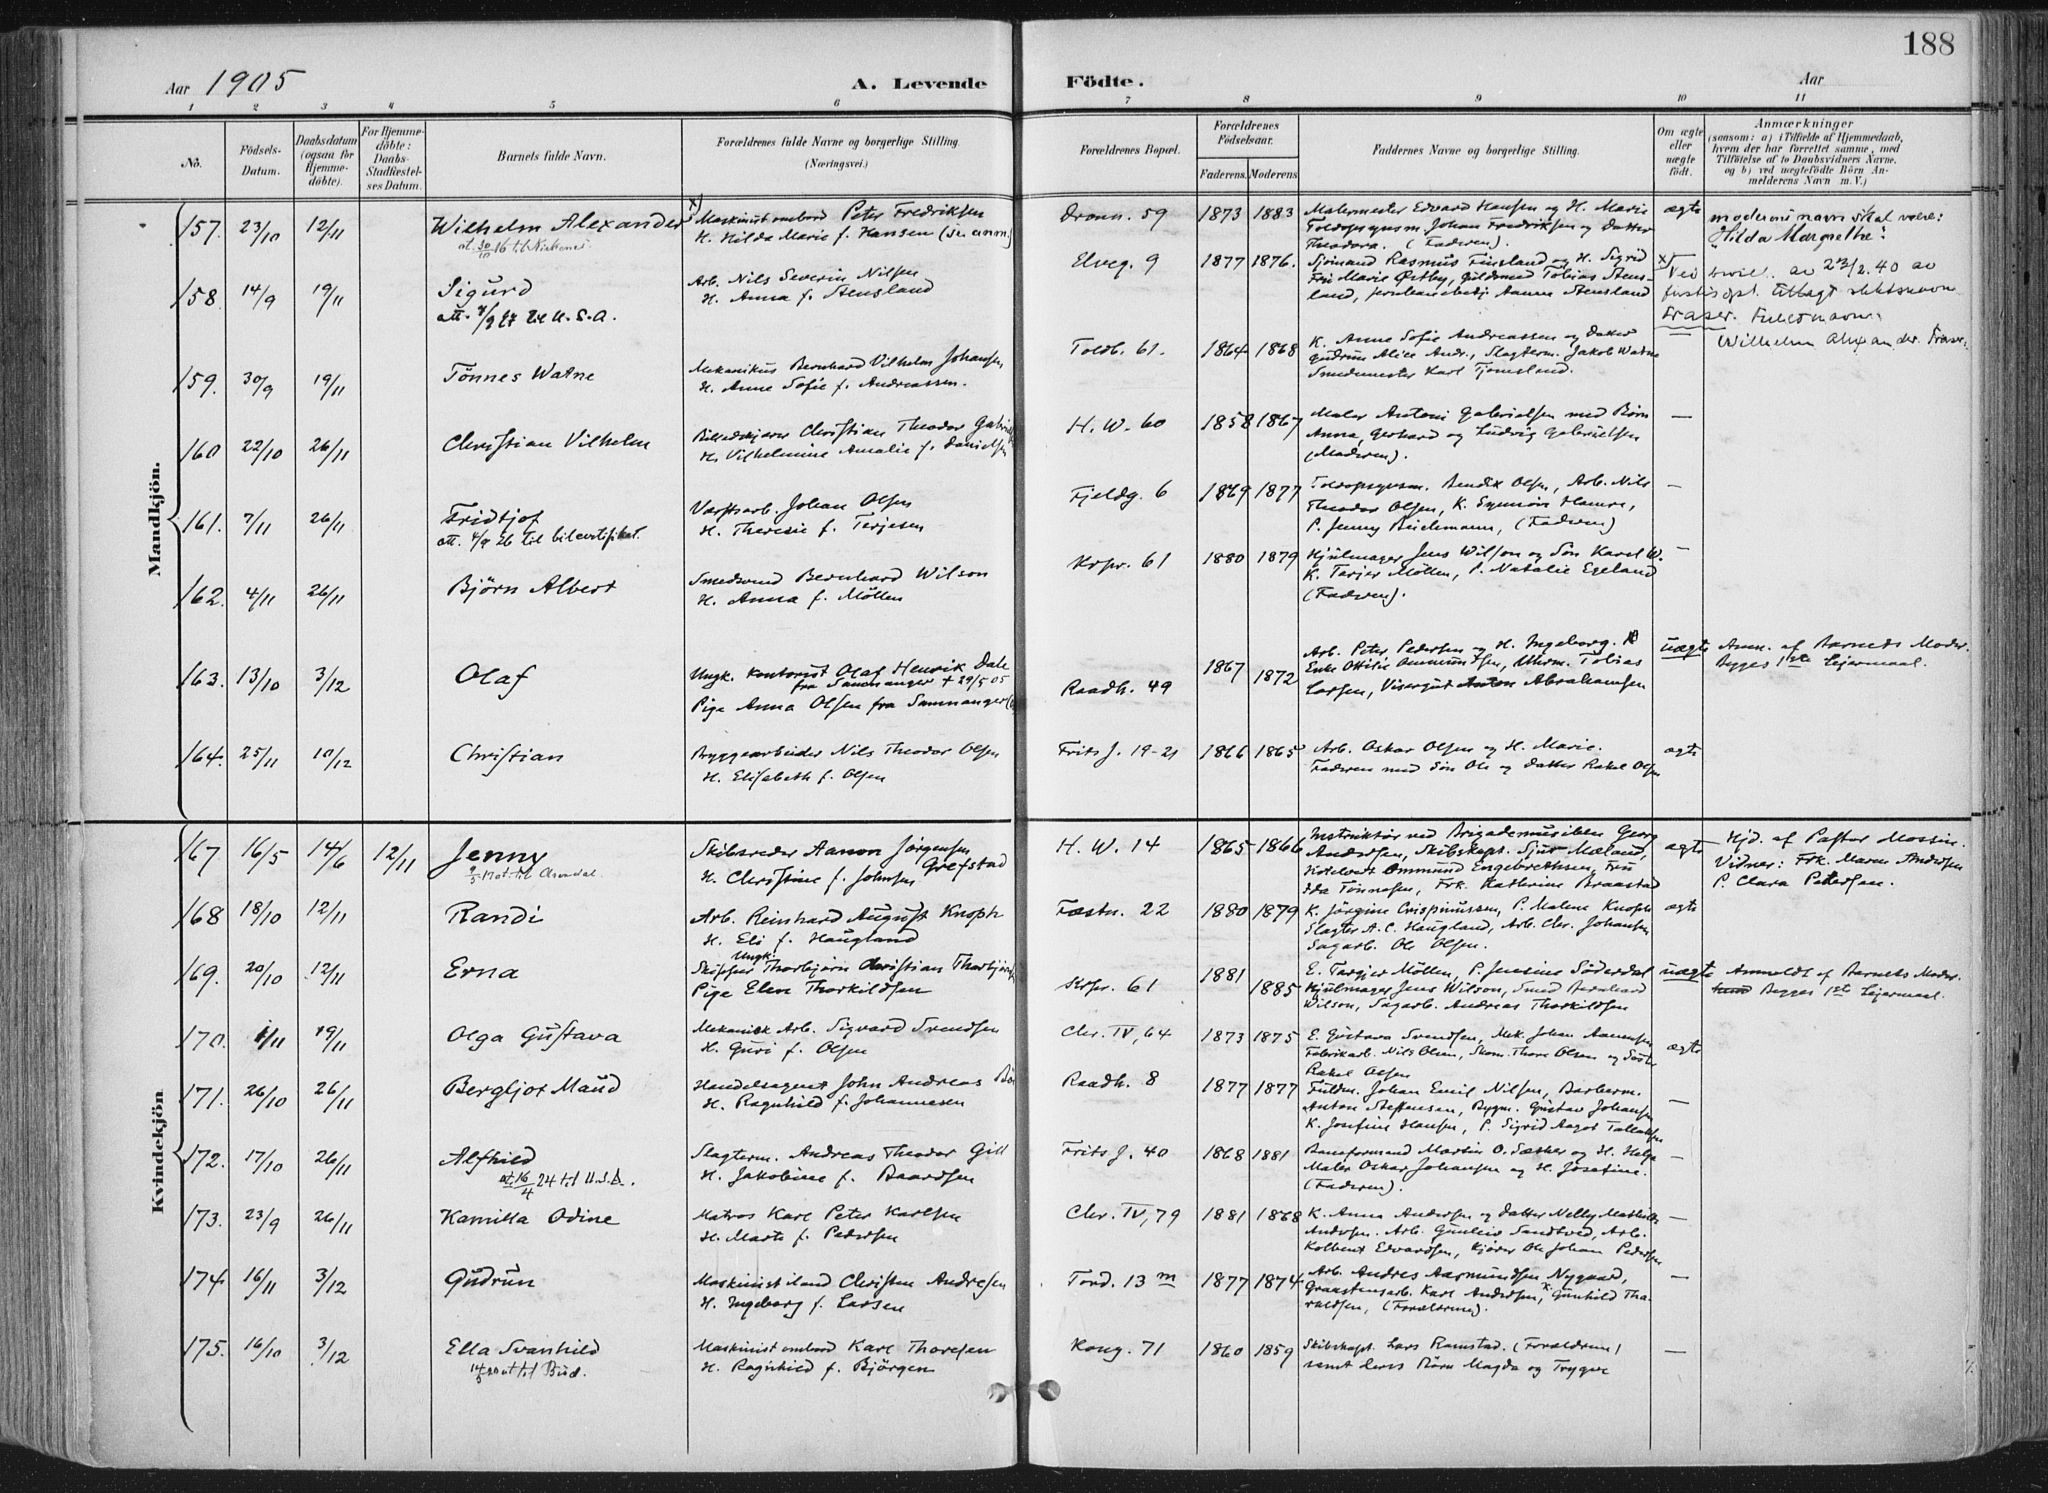 188
Aar 1905
A. Levende Födte.
Aar
1 2 3 4 5 6 7 8 9 10 11
No.
Födsels-Datum.
Daabsdatum (ogsaa for Hjemme-döbte).
For Hjemme-döbte: Daabs-Stadfæstel-ses Datum.
Barnets fulde Navn.
Forældrenes fulde Navne og borgerlige Stilling. (Næringsvei.)
Forældrenes Bopæl.
Forældrenes Födselsaar.
Faderens. Moderens
Faddernes Navne og borgerlige Stilling.
Om ægte eller uægte født.
Anmærkninger
(saasom: a) i Tilfælde af Hjemmedaab,
hvem der har forrettet samme, med
Tilföielse af to Daabsvidners Navne.
og b) ved uægtefödte Börn An-
melderens Navn m. V.)
Mandkjön.
157. 23/10 12/11 Wilhelm Alexander x) Maskinist ombord Peter Fredriksen Dronn. 59 1873 1883 Malermester Edvard Hansen og H. Marie ægte moderens navn skal være:
at. 30/10 16 til Kirkenes H. Hilda Marie f. Hansen (se anm) Toldopsynsm. Johan Fredriksen og Datter "Hilda Margrethe".
Theodora. (Faderen).
158. 14/9 19/11 Sigurd Arb. Nils Severin Nilsen Elveg. 9 1877 1876. Sjömand Rasmus Finsland og H. Sigrid x) Ved bevil. av 23/2.40 av
att. 4/9 27 til U.S.A. H. Anna f. Stensland Frk Marie Østby, Guldsmed Tobias Stens-
land, Anna Stensland slektsnavn
Fraser. Fulde navn:
159. 30/9 19/11 Tönnes Watne Mekanikus Bernhard Vilhelm Johansen Toldb. 61. 1864 1868 K. Anne Sofie Andreassen og Datter — Wilhelm Alexander Fraser
H. Anne Sofie f. Andreassen. Gudrun Alice Andr., Slagterm. Jakob Watne
Smedmester Karl Tjomsland.
160 22/10 26/11 Christian Vilhelm Christian Theodor Gabriels H. W. 60 1858 1867 Maler Antoni Gabrielsen med Børn —
H. Vilhelmine Amalie f. Danielsen Anna, Gerhard og Ludvig Gabrielsen
(Moderen).
161. 7/11 26/11 Fridtjof Værftsarb. Johan Olsen Fjeldg. 6 1869 1877 Toldopsynsm. Bendix Olsen, Arb. Nils —
att. 4/9 26 til bilcertifikat. H. Theresie f. Terjesen Theodor Olsen, K. Synnöv Hamre,
P. Jenny Beichmann, (Faderen)
162. 4/11 26/11 Björn Albert Smedsvend Bernhard Wilson Krpr. 61 1880 1879 Hjulmager Jens Wilson og Sön Karel W. —
H. Anna f. Möllen K. Tarjer Möllen, P. Natalie Egeland
(Faderen).
163. 13/10 3/12 Olaf Ungk. Kontorist Olaf Henrik Dale Raadh. 49 1867 1872 Arb. Peter Pedersen og H. Ingeborg. uægte Anm. af Barnets Moder.
fra Samnanger + 29/5 05 Enke Ottilie Ommundsen, Uhrm. Tobias Begges 1ste Leiermaal.
Pige Anna Olsen fra Samnanger Larsen, Visergut Anton Abrahamsen
164. 25/11 10/12 Christian Bryggearbeider Nils Theodor Olsen Frits J. 19-21 1866 1865 Arb. Oskar Olsen og H. Marie. ægte
H. Elisabeth f. Olsen Faderen med Sön Ole og Datter Rakel Olsen
Kvindekjön
167 16/5 14/6 12/11 Jenny Skibsreder Aanon Jörgensen H. W. 14 1865 1866 Instruktør ved Brigademusiken Georg ægte Hjd. af Pastor Mossin.
9/5 17 at til Arendal. Grefstad Andersen, Skibskapt. Sjur Mæland, Vidner: Frk. Maren Andersen
H. Christine f. Johnsen Ommund Engebrethsen, Fru P. Clara Pedersen.
Ida Tönnesen, Frk. Kathrine Braastad
168 18/10 12/11 Randi Arb. Reinhard August Knoph Fæstn. 22 1880 1879 K. Jörgine Crispinussen, P. Malene Knoph ægte
H. Eli f. Haugland Slagter A.C. Haugland, Arb. Chr. Johansen
Sagarb. Ole Olsen.
169. 20/10 12/11 Erna Ungk. Thorbjörn Christian Krpr. 61 1881 1885 E. Tarjer Möllen, P. Jensine Söderdal uægte Anmeldt af Barnets Moder.
Pige Elen Thorkildsen Hjulmager Jens Wilson, Smed Bernhard Begges 1ste Leiermaal.
Wilson, Sagarb. Andreas Thorkildsen
170. 1/11 19/11 Olga Gustava Mekanisk Arb. Sigvard Svendsen Chr. IV, 64 1873 1875 E. Gustava Svendsen, Mek. Johan Aanensen ægte
H. Guri f. Olsen Fabrikarb. Nils Olsen, Skom. Thore Olsen og
Rakel Olsen
171. 26/10 26/11 Bergljot Maud Handelsagent John Andreas Raadh. 8 1877 1877 Fuldm. Johan Emil Nilsen, Barberm. —
H. Ragnhild f. Johannesen Anton Steffensen, Bygm. Gustav Johansen
K. Josefine Hansen, P. Sigrid Aagot Tallaksen
172. 17/10 26/11 Alfhild Slagterm. Andreas Theodor Gill Frits J. 40 1868 1881 Baneformand Martin O. Sæther og H. Helga —
at 16/4 24 til U.S.A. H. Jakobine f. Baardsen Maler Oskar Johansen og H. Josefine.
(Faderen).
173. 23/9 26/11 Kamilla Odine Matros Karl Peter Karlsen Chr. IV, 79 1881 1868 K. Anna Andersen og datter Nelly Mathilde —
H. Marte f. Pedersen Andersen. Arb. Gunleiv Sandtved, Arb.
Kolbent Edvardsen, Kjører Ole Johan Pedersen
174 16/11 3/12 Gudrun Maskinist iland Christen Andresen Tord. 13 m 1877 1874 Arb. Andres Aasmundsen Nygaard, —
H. Ingeborg f. Larsen Graastensarb. Karl Andersen, K. Gunhild Tha-
raldsen, (Forældrene).
175. 16/10 3/12 Ella Svanhild Maskinist ombord Karl Thorsen Kong. 71 1860 1859 Skibskapt. Lars Ramstad. (Forældrene) —
14/5 20 at til Bud. H. Ragnhild f. Björgen samt deres Börn Magda og Trygve